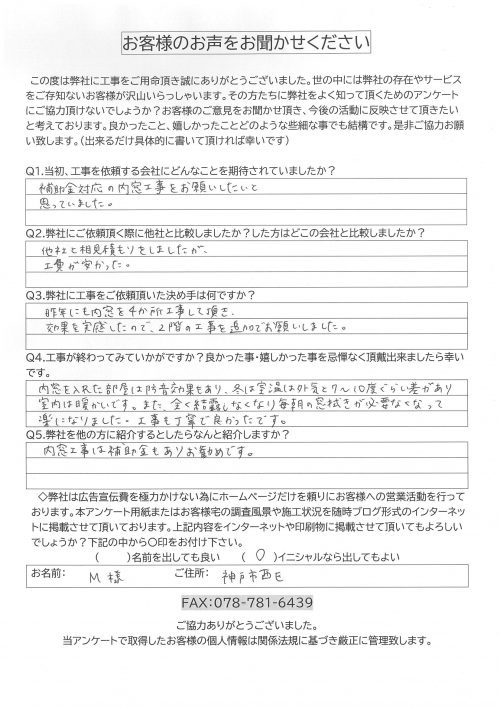 お客様のお声をお聞かせください
この度は弊社に工事をご用命頂き誠にありがとうございました。世の中には弊社の存在やサービス
をご存知ないお客様が沢山いらっしゃいます。その方たちに弊社をよく知って頂くためのアンケート
にご協力頂けないでしょうか?お客様のご意見をお聞かせ頂き、今後の活動に反映させて頂きたい
と考えております。良かったこと、嬉しかったことどのような些細な事でも結構です。是非ご協力お願
い致します。(出来るだけ具体的に書いて頂ければ幸いです)
Q1.当初、工事を依頼する会社にどんなことを期待されていましたか?
補助金対応の内窓工事をお願いしたいと
思っていました。
Q2.弊社にご依頼頂く際に他社と比較しましたか?した方はどこの会社と比較しましたか?
他社と相見積もりをしましたが、
工費が安かった。
Q3.弊社に工事をご依頼頂いた決め手は何ですか?
昨年にも内窓を4か所工事して頂き、
効果を実感したので、2階の工事を追加でお願いしました。
Q4.工事が終わってみていかがですか?良かった事・嬉しかった事を忌憚なく頂戴出来ましたら幸い
です。
内窓を入れた部屋は防音効果もあり、冬は室温は外気と7〜10度ぐらい差があり
室内は暖かいです。また、全く結露しなくなり毎朝の窓拭きが必要なくなって
楽になりました。工事も丁寧で良かったです。
Q5.弊社を他の方に紹介するとしたらなんと紹介しますか?
内窓工事は補助金もありお勧めです。
◇弊社は広告宣伝費を極力かけない為にホームページだけを頼りにお客様への営業活動を行って
おります。本アンケート用紙またはお客様宅の調査風景や施工状況を随時ブログ形式のインターネッ
トに掲載させて頂いております。上記内容をインターネットや印刷物に掲載させて頂いてもよろしい
でしょうか?下記の中から〇印をお付け下さい。
( )名前を出しても良い (〇)イニシャルなら出してもよい
お名前: M様 ご住所: 神戸市西区
FAX:078-781-6439
ご協力ありがとうございました。
当アンケートで取得したお客様の個人情報は関係法規に基づき厳正に管理致します。